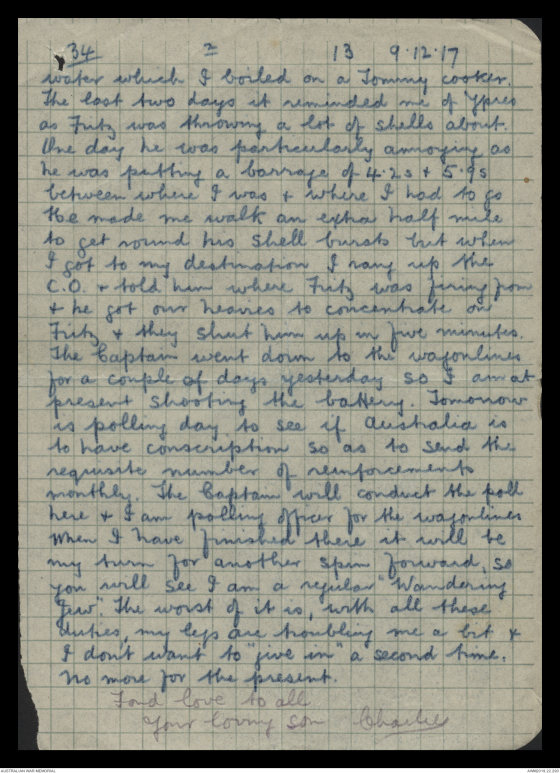 34 2 13 9.12.17
water which I boiled on a Tommy cooker.
The last two days it reminded me of Ypres
as Fritz was throwing a lot of shells about.
One day he was particularly annoying as
he was putting a barrage of 4.2s & 5.9s
between where I was & where I had to go
He made me walk an extra half mile
to get round his shell bursts but when
I got to my destination I rang up the
C.O. & told him where Fritz was firing from
& he got our heavies to concentrate on
Fritz & they shut him up in five minutes.
The Captain went down to the wagonlines
for a couple of days yesterday so I am at
present shooting the battery. Tomorrow
is polling day to see if Australia is
to have conscription so as to send the
requisite number of reinforcements
monthly. The Captain will conduct the poll
here & I am polling officer for the wagonlines
When I have finished there it will be
my turn for another spin forward, so
you will see I am a regular "Wandering
Jew". The worst of it is, with all these
duties, my legs are troubling me a bit &
I don't want to "give in" a second time.
No more for the present.
Fond love to all
Your loving son Charlie
AUSTRALIAN WAR MEMORIAL